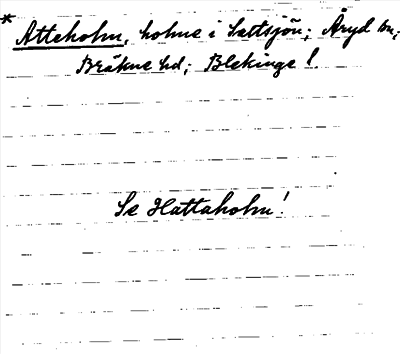 * Atteholm, holme i Sattsjön; Åryd sn;
Bräkne hd; Blekinge l.
Se Hattaholm!